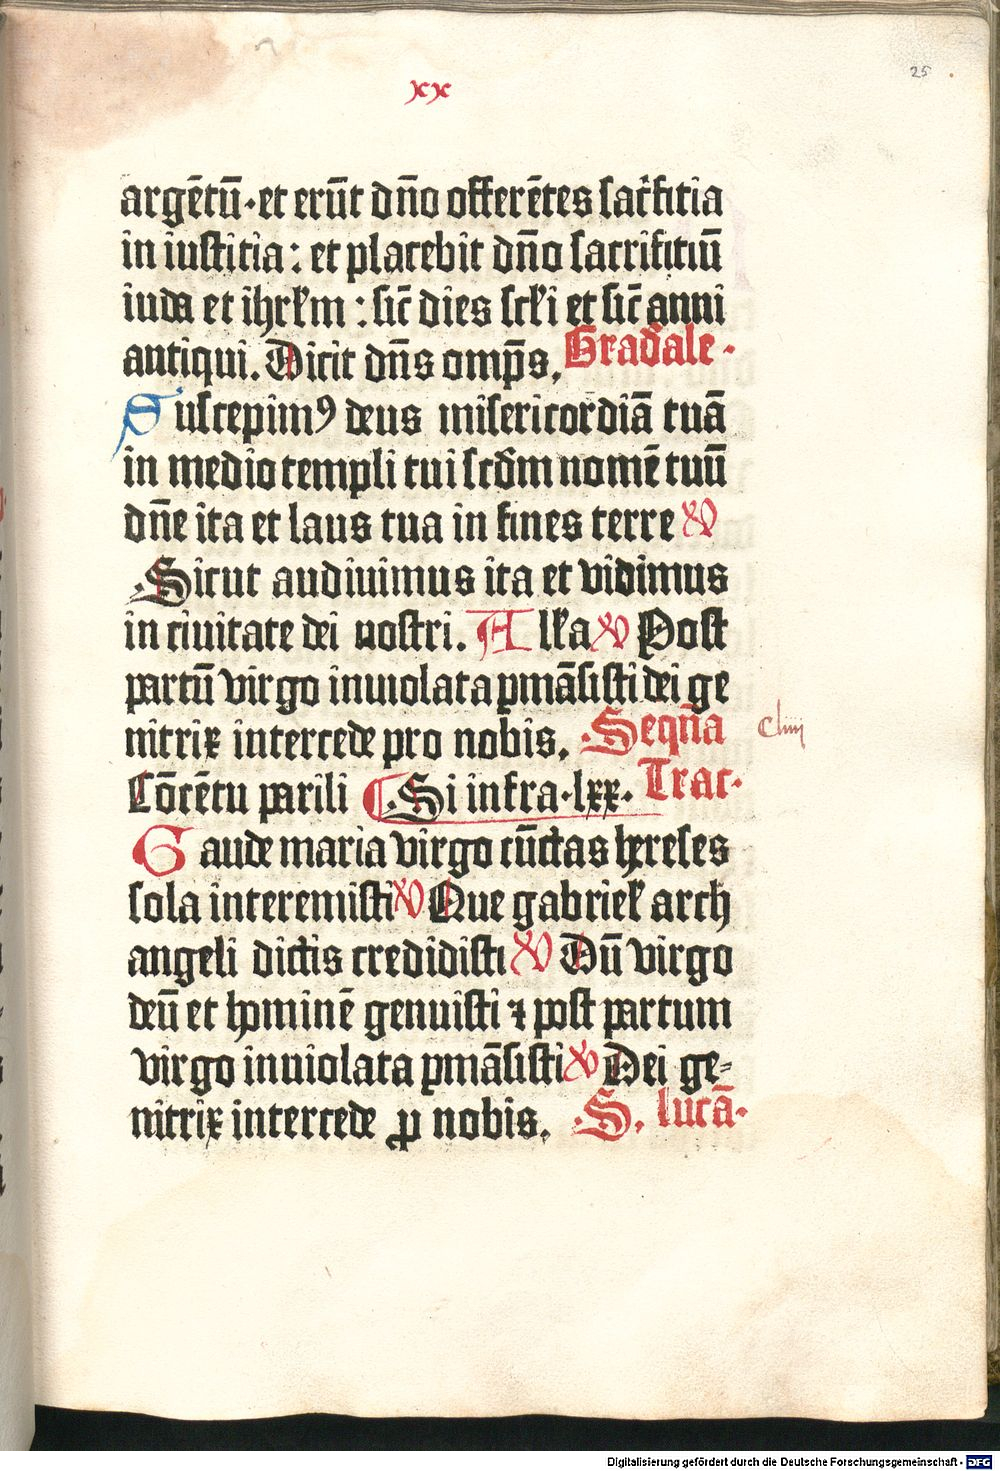 xx
25
argētū · et erūt dño offerētes sacr̄fitia
in iustitia : et placebit dño sacrifitiū
iuda et ihrl̄m : sic̄ dies scl̄i et sic̄ anni
antiqui. Dicit dñs omp̄s. Gradale ·
Suscepimꝰ deus misericordiā tuā
in medio templi tui scd̄m nomē tuū
dñe ita et laus tua in fines terre ℣
Sicut audiuimus ita et vidimus
in ciuitate dei nostri. All̄a ℣ Post
partū virgo inuiolata ꝑmāsisti dei ge
nitrix intercede pro nobis. Seqña
cliiij
Cōcētu parili ¶ Si infra · lxx · Trac ·
Gaude maria virgo cūctas hereses
sola interemisti ℣ Que gabriel̄ arch
angeli dictis credidisti ℣ Dū virgo
deū et hominē genuisti ⁊ post partum
virgo inuiolata ꝑmāsisti ℣ Dei ge-
nitrix intercede ꝓ nobis. S. lucā ·
Digitalisierung gefördert durch die Deutsche Forschungsgemeinschaft - DFG